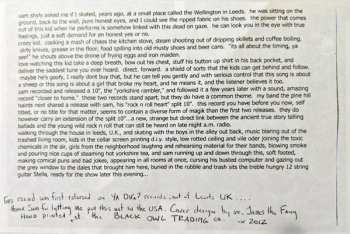 sam shjfe asked me if i skated, years ago, at a small place called the Wellington in Leeds.  he was sitting on the
ground, back to the wall, pure honest eyes, and i could see the ripped fabric on his shoes.  the power that comes
out of this kid when he performs is somehow linked with this dead on gaze.  he can look you in the eye with true
feelings, just a soft demand for an honest yes or no.
crazy kid.  cooking in the chaos the kitchen stove, steam shooting out of dripping skillets and coffee boiling,
dirty knives, grease in the floor, food spilling into old musty shoes and beer cans.  "its all about the timing, ya
see!" he shouts above the drone of frying eggs and iron maiden.
love watching this kid take a deep breath, blow out his chest, stuff his button up shirt in his back pocket, and
deliver the saddest tune you ever heard.  direct.  forward.  a shield of sorts that the kids can get behind and follow.
maybe he's goofy, i really dont buy that, but he can tell you gently and with serious control that this song is about
a sheep or this song is about a girl that broke my heart, and he means it, and the listener believes it too.
sam recorded and released a 10", the "yorkshire rambler," and followed it a few years later with a sound, amazing
record "closer to home."  these two records stand apart, but they do have a common theme.  my band the pine hill
haints next shared a release with sam, his "rock n roll heart" split 10".  this record you have before you now, self
titled, or no title for that matter, seems to contain a diverse form of magik than the first two releases.  they do
however carry an extension of the split 10"...a new, strange but direct link between the ancient true story telling
ballads and the young wild rock n roll that can still be heard on late night a.m. radio.
walking through the house in leeds, U.K., and skating with the boys in the alley out back, music blaring out of the
trashed living room, kids in the cellar screen printing d.i.y. style, low rotted ceiling and vile odor joining the toxic
chemicals in the air, girls from the neighborhood laughing and rehearsing material for their bands, blowing smoke
and pouring nice cups of steaming hot yorkshire tea, and sam running up and down through this, soft footed,
making comical puns and bad jokes, appearing in all rooms at once, cursing his busted computer and gazing out
the grey window to the dales that brought him here, buried in the rubble and treble hungry strings inside his 12 string
guitar Stella, ready for the show later this evening...
This record was first released on YA DIG? records out of Leeds UK ....
thanks Sam for letting me put this out in the USA. Cover design by Mr. James the Fang
Hand printed at the BLACK OWL TRADING co. in 2012